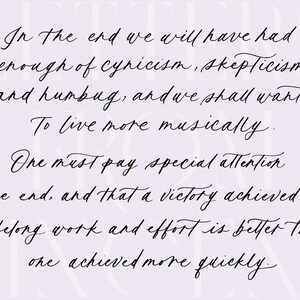 In the end we will have had
enough of cynicism, skepticism
and humbug, and we shall want
To live more musically.
One must pay special attention
end, and that a victory achieved
work and effort is better
one achieved more quickly.